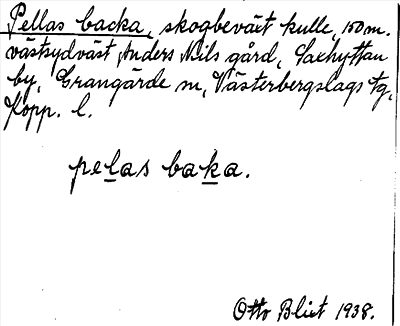 Pellas backa, skogbeväxt kulle, 150 m.
västsydväst Anders Nils gård, Saxhyttan
by, Grangärde sn, Västerbergslags tg,
Kopp. l.
pelas baka.
Otto Blixt 1938.